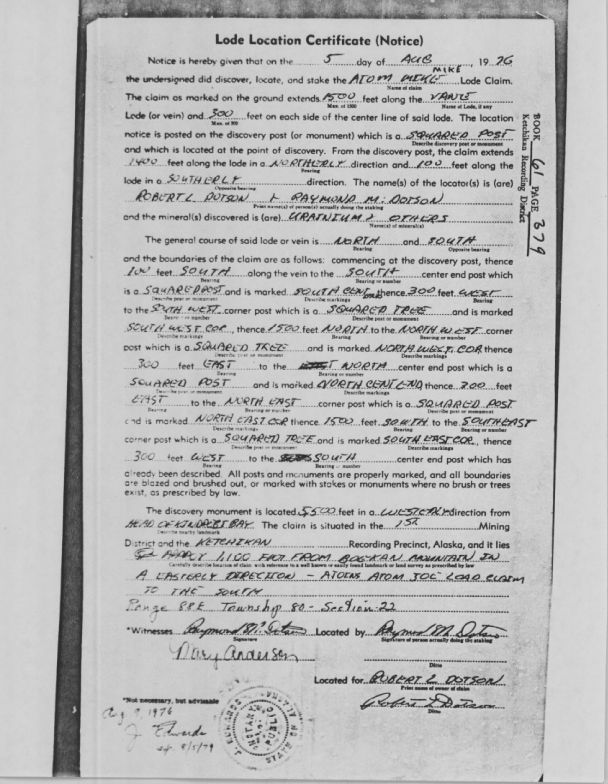 Lode Location Certificate (Notice)
Notice is hereby given that on the 5 day of AUG, 1976
MIKE
the undersigned did discover, locate, and stake the ATOM MIKE Lode Claim.
Name of claim
The claim as marked on the ground extends 1500 feet along the
Max. of 1500 Name of Lode, if any
Lode (or vein) and 300 feet on each side of the center line of said lode. The location
Max. of 300
notice is posted on the discovery post (or monument) which is a SQUARED POST
Describe discovery post or monument
and which is located at the point of discovery. From the discovery post, the claim extends
1400 feet along the lode in a NORTHERLY direction and 100 feet along the
Bearing
lode in a SOUTHERLY direction. The name(s) of the locator(s) is (are)
Opposite bearing
ROBERT L. DOTSON & RAYMOND M. DOTSON
Print name(s) of person(s) actually doing the staking
and the mineral(s) discovered is (are) URAINIUM & OTHERS
Name(s) of mineral(s)
BOOK 61 PAGE 379
Ketchikan Recording District
The general course of said lode or vein is NORTH and SOUTH
Bearing Opposite bearing
and the boundaries of the claim are as follows: commencing at the discovery post, thence
100 feet SOUTH along the vein to the SOUTH center end post which
Bearing Bearing or number
is a SQUARED POST and is marked SOUTH CENT END thence 300 feet WEST
Describe post or monument Describe markings Bearing
to the SOUTH WEST corner post which is a SQUARED TREE and is marked
Bearing or number Describe post or monument
SOUTH WEST COR, thence 1500 feet NORTH to the NORTH WEST corner
Describe markings Bearing Bearing or number
post which is a SQUARED TREE and is marked NORTH WEST COR thence
Describe post or monument Describe markings
300 feet EAST to the NORTH center end post which is a
Bearing Bearing or number
SQUARED POST and is marked NORTH CENT END thence 300 feet
Describe post or monument Describe markings
EAST to the NORTH EAST corner post which is a SQUARED POST
Bearing Bearing or number Describe post or monument
and is marked NORTH EAST COR thence 1500 feet SOUTH to the SOUTH EAST
Describe markings Bearing Bearing or number
corner post which is a SQUARED TREE and is marked SOUTH EAST COR, thence
Describe post or monument Describe markings
300 feet WEST to the SOUTH center end post which has
Bearing Bearing or number
already been described. All posts and monuments are properly marked, and all boundaries
are blazed and brushed out, or marked with stakes or monuments where no brush or trees
exist, as prescribed by law.
The discovery monument is located 5500 feet in a WESTERLY direction from
HEAD OF KENDRICK BAY. The claim is situated in the 1st Mining
Describe nearby landmark
District and the KETCHIKAN Recording Precinct, Alaska, and it lies
1,100 FEET FROM BOCKAN MOUNTAIN IN
Carefully describe location of claim with reference to a well known or easily found landmark or land survey as prescribed by law
A EASTERLY DIRECTION - ATOM JOE LOAD CLAIM
TO THE SOUTH
Range 88E Township 80 - Section 22
*Witnesses Raymond M. Dotson Located by Raymond M. Dotson
Signature Signature of person actually doing the staking
Mary Andersen
Ditto
Located for ROBERT L DOTSON
Print name of owner of claim
*Not necessary, but advisable
Robert L Dotson
Ditto
Aug 9, 1976
J. Edwards
NOTARY PUBLIC
8/5/79